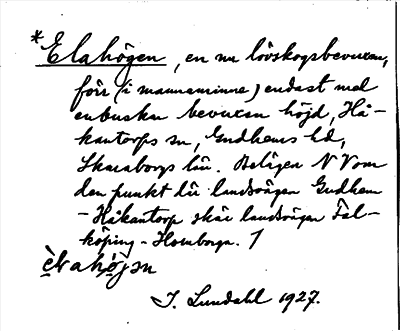 * Elahögen, en nu lövskogsbevuxen,
förr (i mannaminne) endast med
enbuskar bevuxen höjd, Hå-
kantorps sn, Gudhems hd,
Skaraborgs län. Belägen N V om
den punkt där landsvägen Gudhem
- Håkantorp skär landsvägen Fal-
köping - Hornborga.
I. Lundahl 1927.